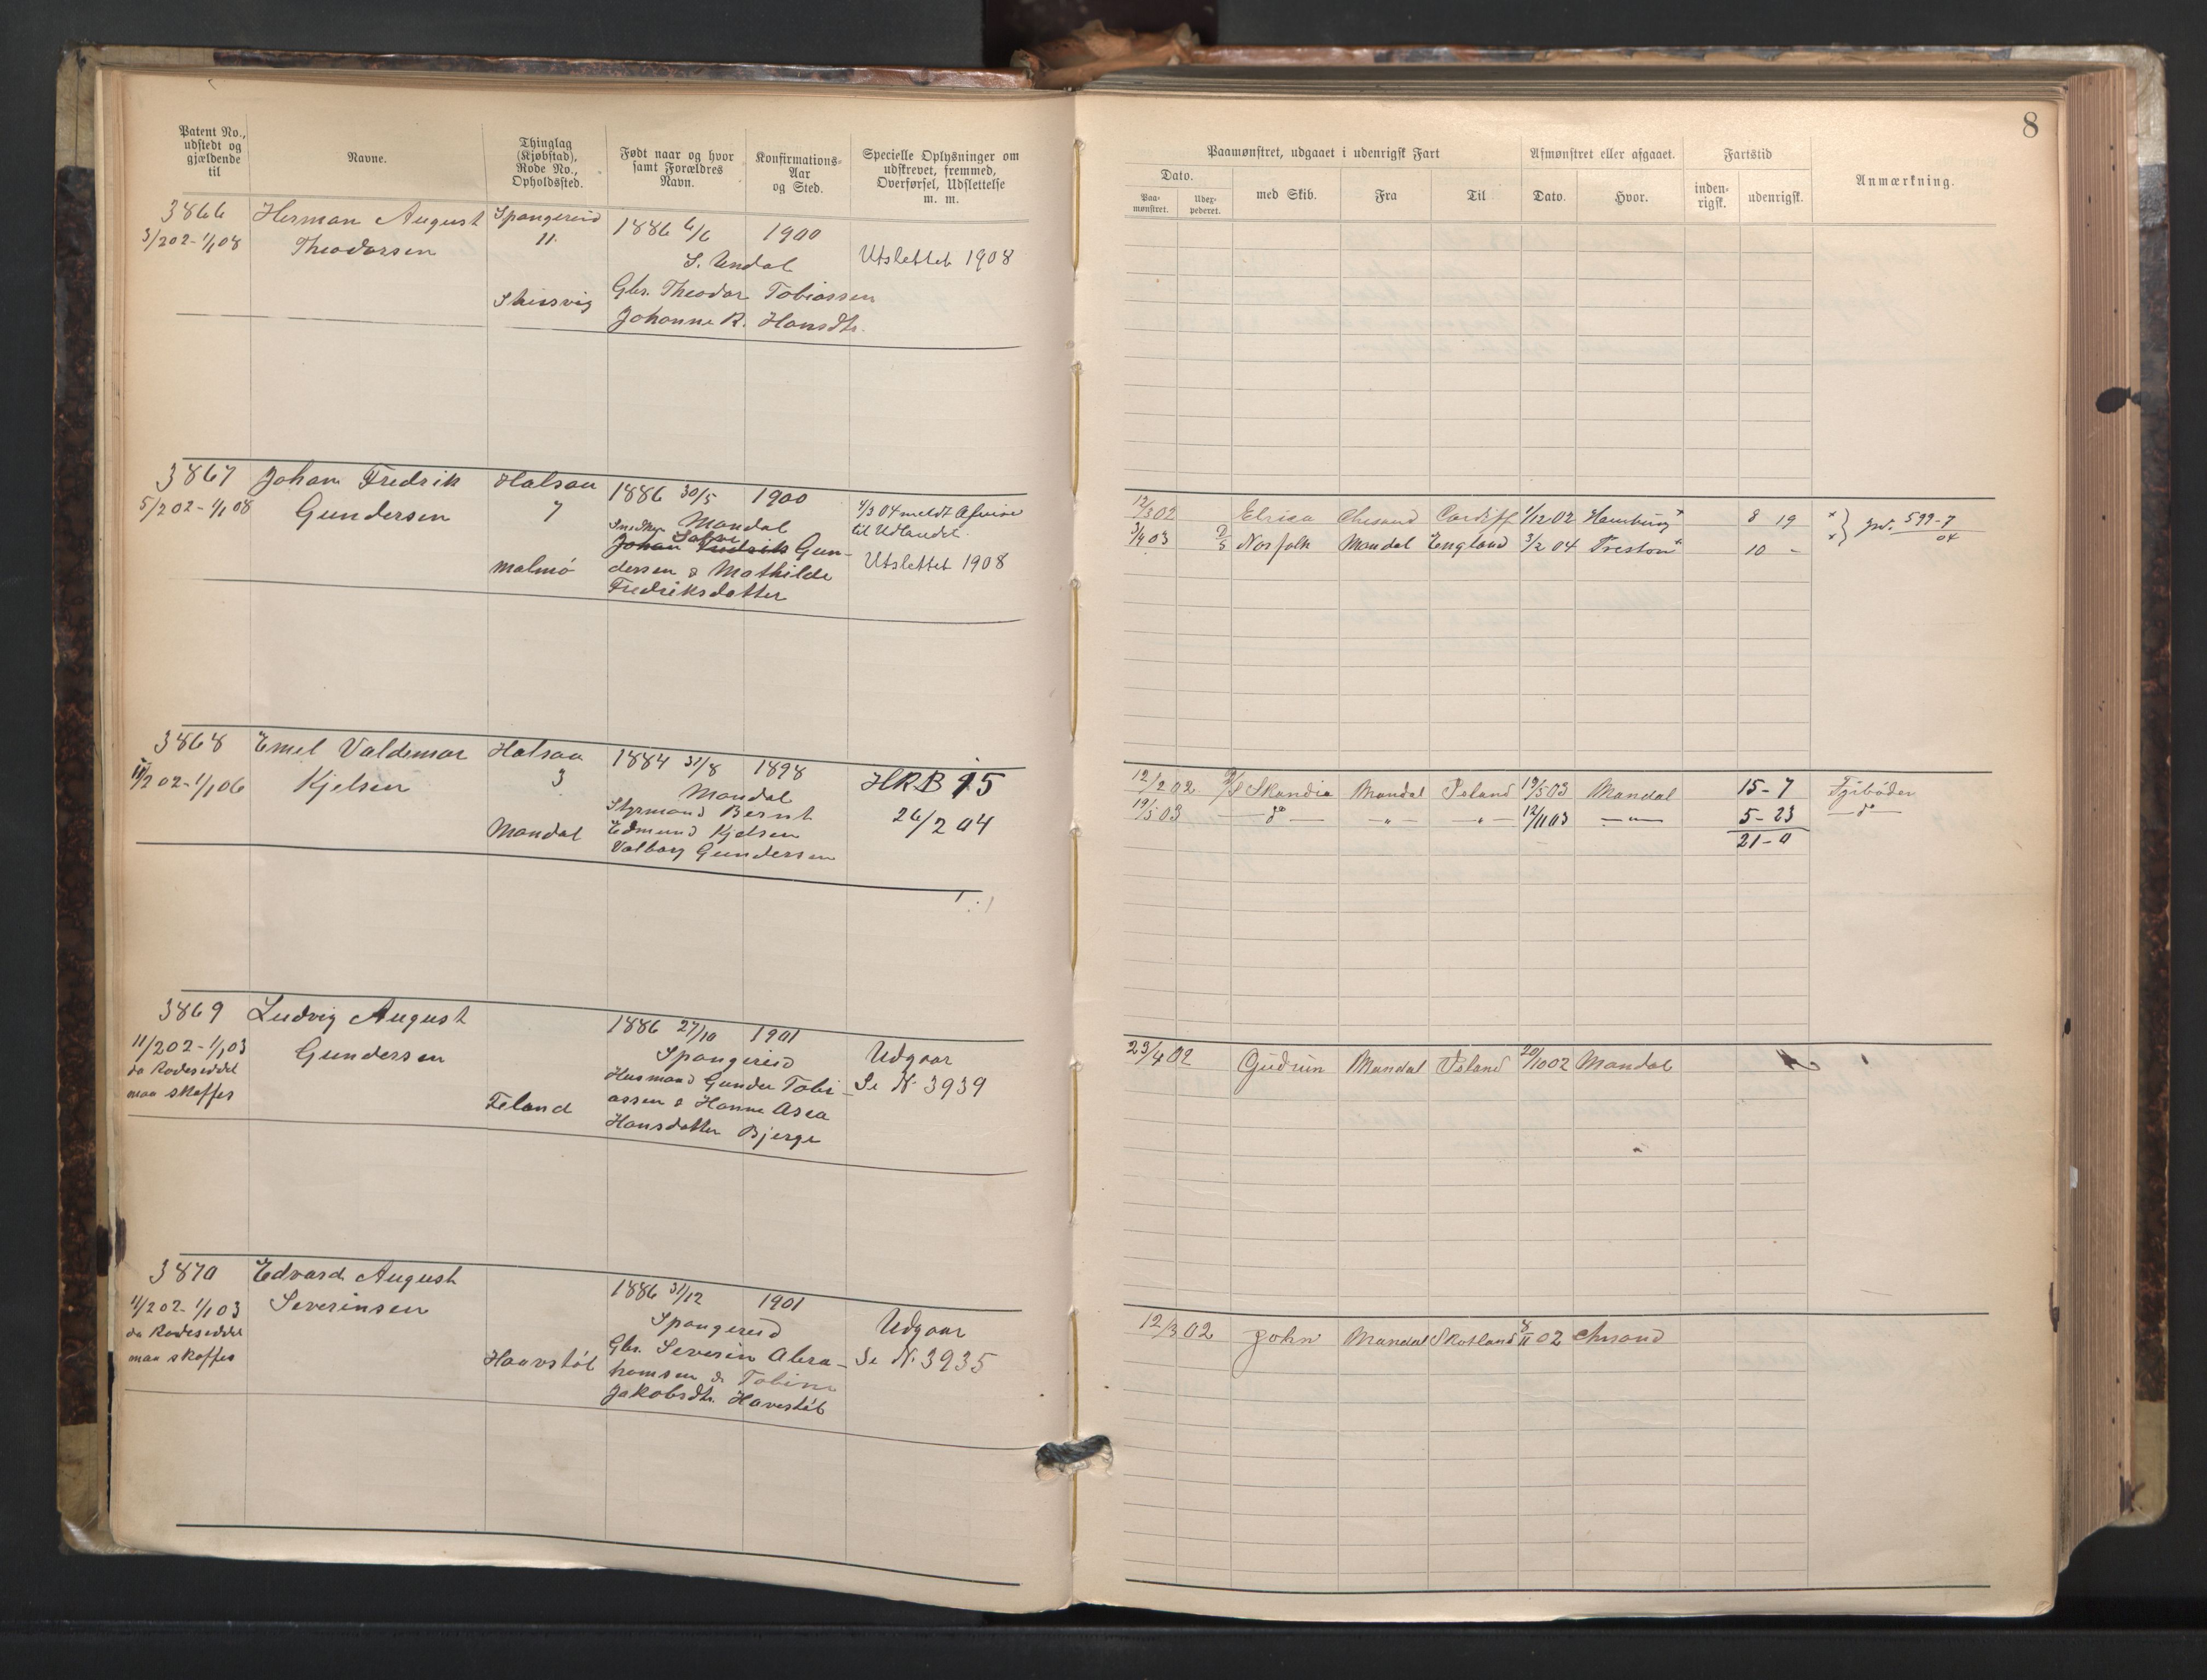 8
Patent No., udstedt og gjældende til
Navne.
Thinglag (Kjøbstad), Rode No., Opholdssted.
Født naar og hvor samt Forældres Navn.
Konfirmations-Aar og Sted.
Specielle Oplysninger om udskrevet, fremmed, Overførsel, Udslettelse m. m.
Paamønstret, udgaaet i udenrigsk Fart
Afmønstret eller afgaaet.
Fartstid
Anmærkning.
Dato.
Paa-mønstret.
Udex-pederet.
med Skib.
Fra
Til
Dato.
Hvor.
inden-rigsk.
udenrigsk.
3866
3/2 02 - 1/1 08
Herman August
Theodorsen
Spangereid
11.
1886 6/6 1900
S. Undal
Gbr. Theodor Tobiassen
Johanne R. Hansdtr.
Utslettet 1908
3867
5/2 02 - 1/1 08
Johan Fredrik
Gundersen
Halsaa
7
Malmö
1886 30/5 1900
Mandal
Johan Fredrik Gun-
dersen & Mathilde
Fredriksdatter
4/3 04 meldt Afreise
til Udlandet.
Utslettet 1908
12/3 02 Elrica Chrsand Cardiff 1/12 02 Hamburg x 8 19
3/4 03 Norfolk Mandal England 3/2 04 Preston x 10 -
599-7
04
3868
11/2 02 - 1/1 06
Emil Valdemar
Kjelsen
Halsaa
3
Mandal
1884 31/8 1898
Mandal
Styrmand Bernt
Edmund Kjelsen
Valborg Gundersen
HRB 15
26/2 04
12/2 02 D/S Skandia Mandal Island 19/5 03 Mandal 15-7 Fyrbøder
19/5 03 — do — — " — — " — 12/11 03 — " — 5-23 — do —
21-0
3869
11/2 02 - 1/1 03
da Rodeseddel
maa skaffes
Ludvig August
Gundersen
Feland
1886 27/10 1901
Spangereid
Husmand Gunder Tobi-
assen & Hanne Asea
Hansdatter Bjerge
Udgaar
Se N. 3939
23/4 02 Gudrun Mandal Island 20/10 02 Mandal
3870
11/2 02 - 1/1 03
da Rodeseddel
maa skaffes
Edvard August
Severinsen
Haavstöl
1886 31/12 1901
Spangereid
Gbr. Severin Abra-
hamsen & Tobine
Jakobsdtr. Havestöl
Udgaar
Se N. 3935
12/3 02 John Mandal Skotland 8/11 02 Chrsand